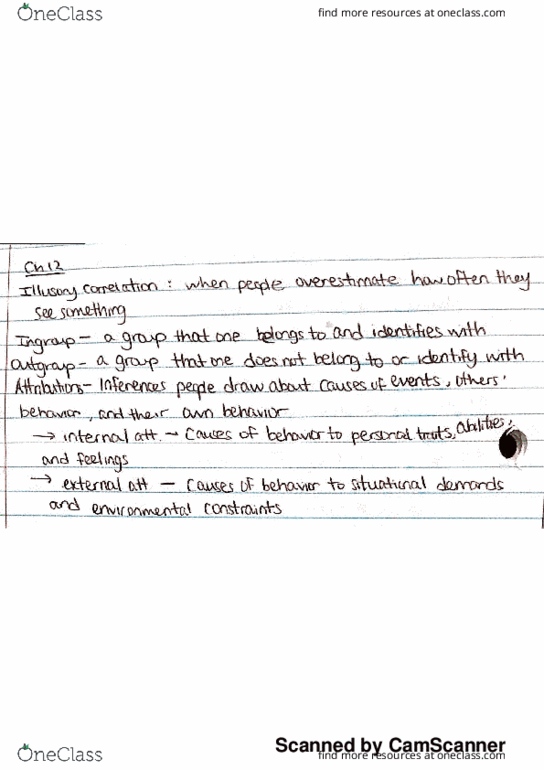 OneClass
find more resources at oneclass.com
Ch.12
Illusory correlation : when people overestimate how often they
see something
Ingroup - a group that one belongs to and identifies with
outgroup - a group that one does not belong to or identify with
Attributions - Inferences people draw about causes of events, others'
behavior, and their own behavior
→ internal att. - causes of behavior to personal traits, abilities,
and feelings
→ external att - causes of behavior to situational demands
and environmental constraints
Scanned by CamScanner
OneClass
find more resources at oneclass.com